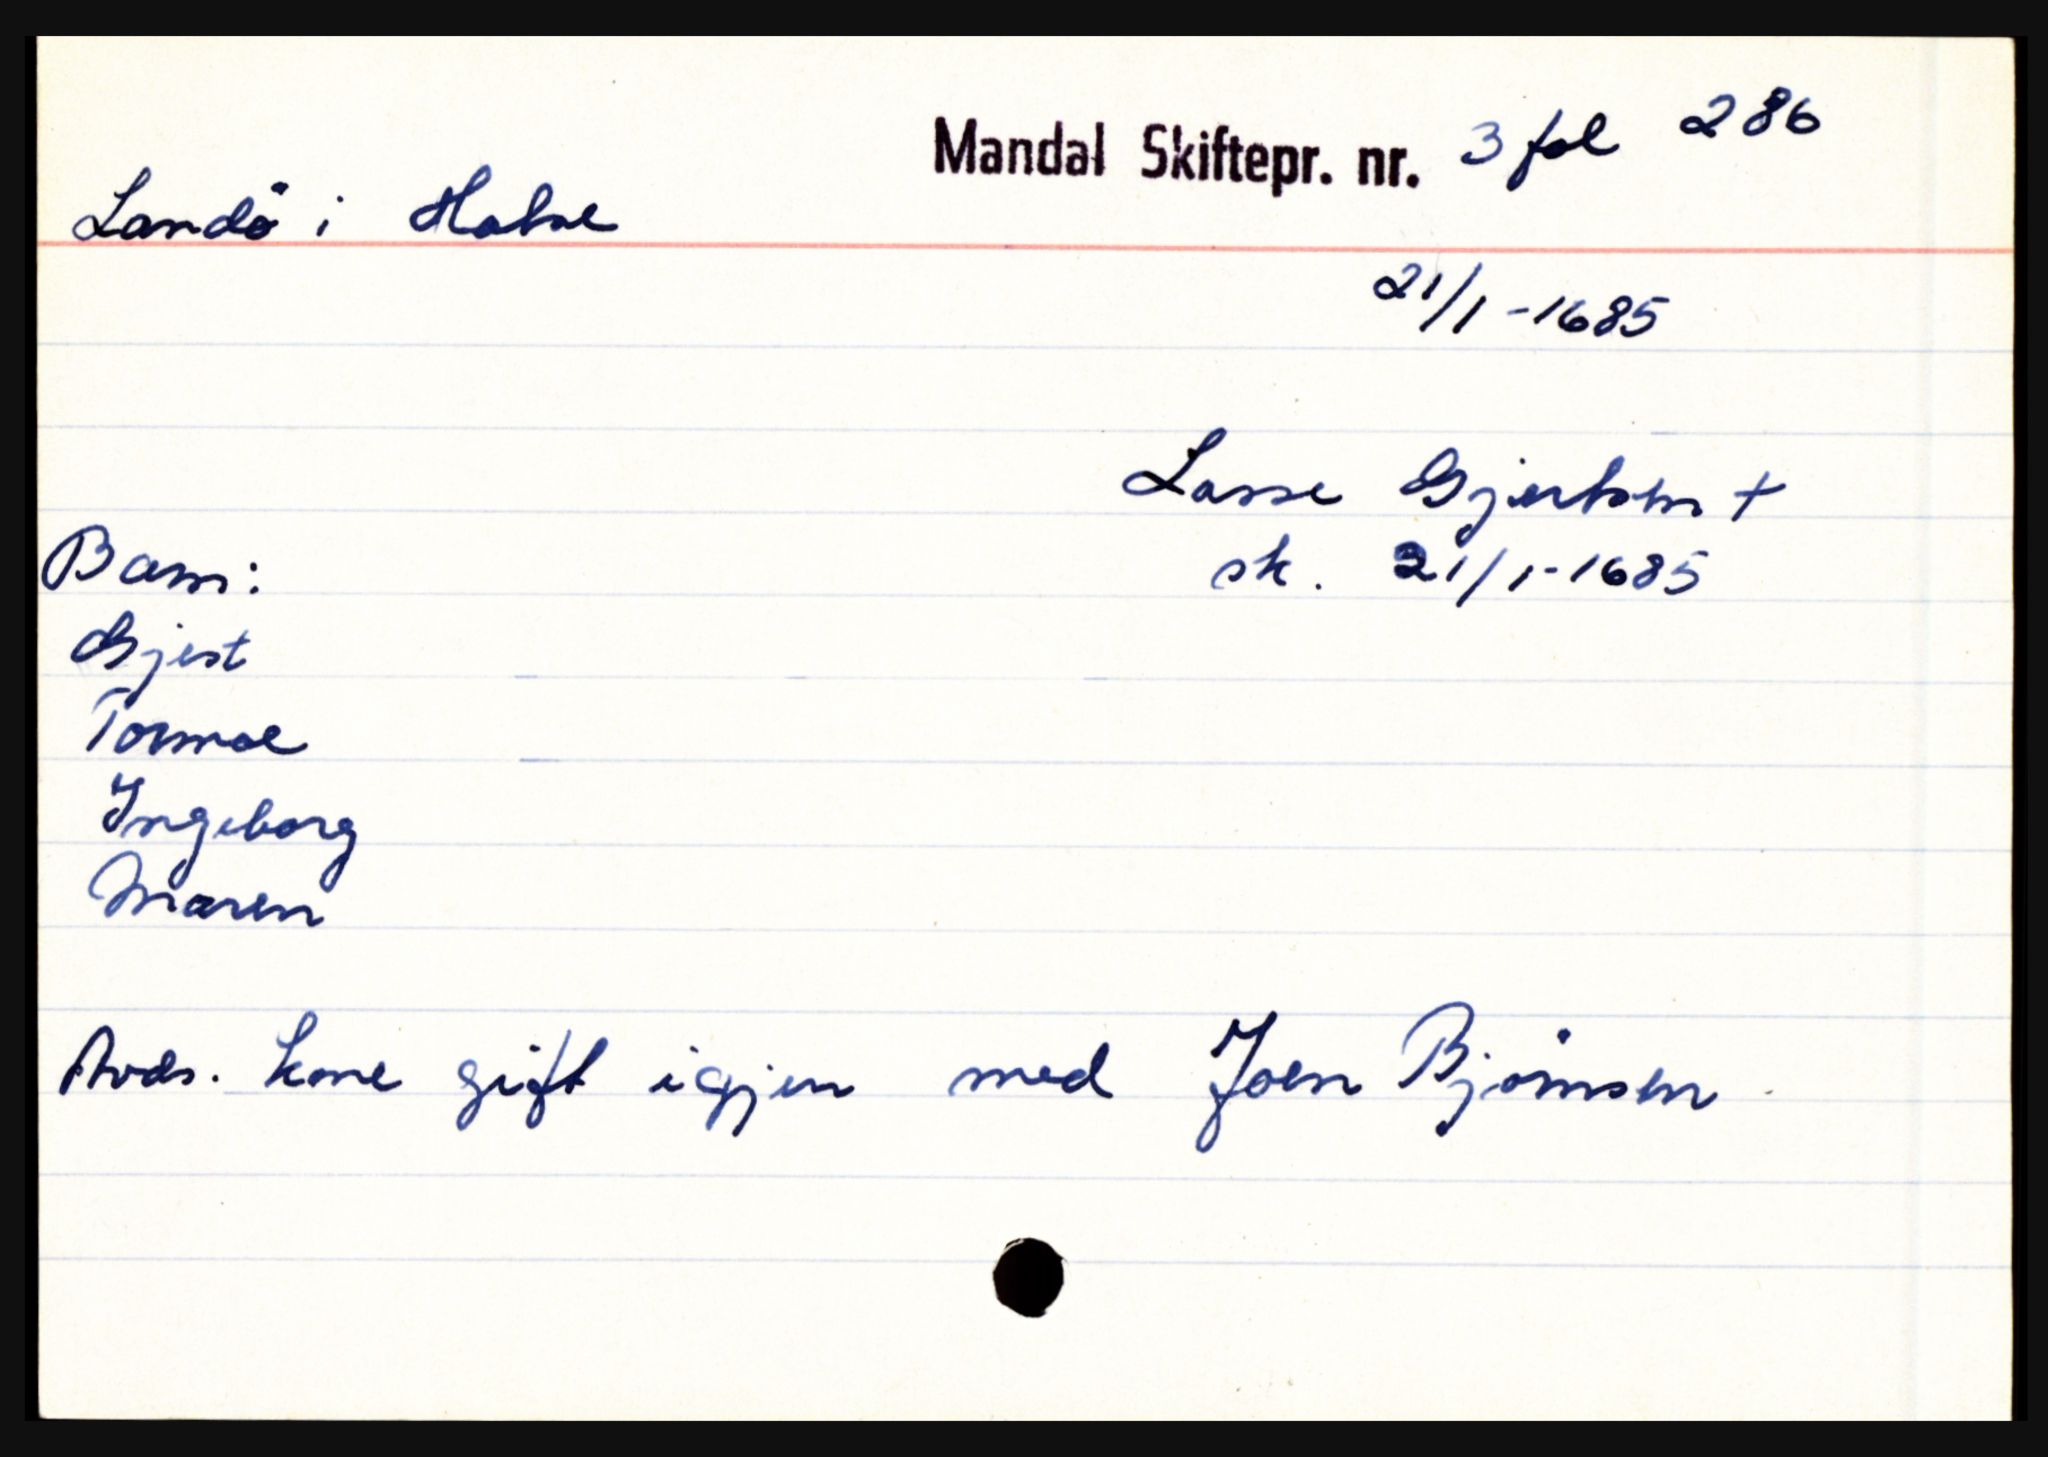 Mandal Skiftepr. nr. 3 fol 286
Landö i Halse
21/1-1685
Lasse Gjertsen +
Barn: sk. 21/1-1685
Gjest
Tormoe
Ingeborg
Maren
Avds. kone gift igjen med Joen Björnsen